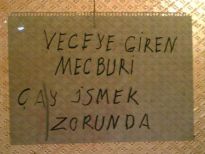 VECEYE GİREN
MECBURİ
ÇAY İSMEK
ZORUNDA